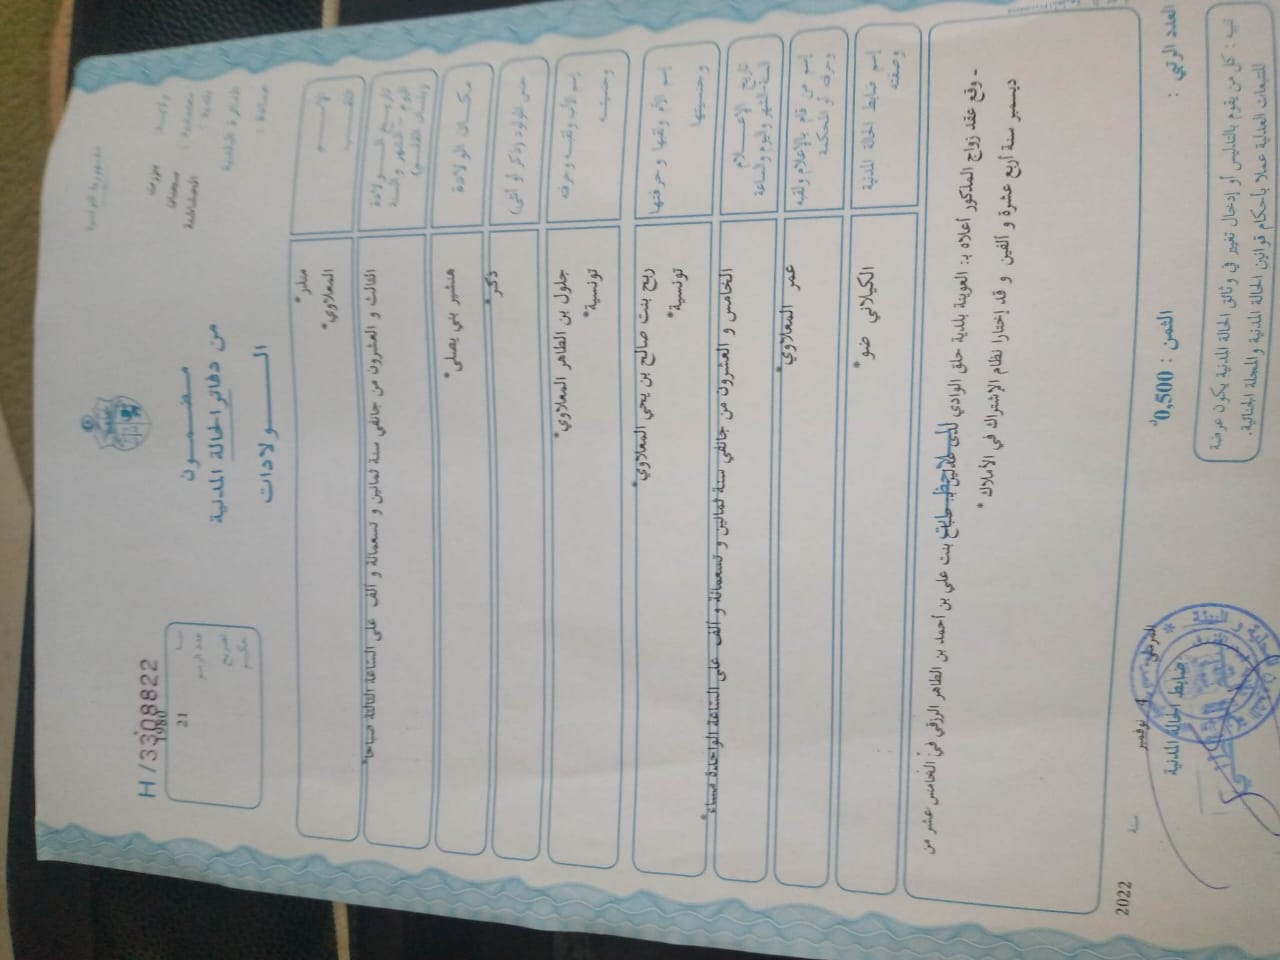 الجمهورية التونسية
ولاية : بنزرت
معتمدية : سجنان
بلدية : الحشاشنة
الدائرة البلدية
عمادة :
مضمــون
من دفاتر الحالة المدنية
الــولادات
H/3308822
سنة 1980
عدد الرسم 21
الإســم
اللقــب
منذر*
المعلاوي*
الثالث و العشرون من جانفي سنة ثمانين و تسعمائة و ألف على الساعة الثالثة صباحا*
مكــان الولادة
هنشير بني يصلى*
جنس المولود (ذكر أو أنثى)
ذكر*
إسم الأب ولقبه وحرفته
وجنسيته
جلول بن الطاهر المعلاوي*
تونسية*
إسم الأم ولقبها وحرفتها
وجنسيتها
ربح بنت صالح بن يحي المعلاوي*
تونسية*
تاريخ الإعــلام
السنة-الشهر واليوم والساعة
الخامس و العشرون من جانفي سنة ثمانين و تسعمائة و ألف على الساعة الواحدة مساء*
إسم من قام بالإعلام ولقبه
وحرفته أو المحكمة
عمر المعلاوي*
إسم ضابط الحالة المدنية
وصفته
الكيلاني ضو*
- وقع عقد زواج المذكور أعلاه بـ: العوينة بلدية حلق الوادي لدى عدلين بـ: بنت علي بن أحمد بن الطاهر الرزقي في الخامس عشر من
ديسمبر سنة أربع عشرة و ألفين و قد إختارا نظام الإشتراك في الأملاك *
ملاحظــات
العدد الرتبي :
الثمن : 0,500د
4 نوفمبر سنة 2022
ضابط الحالة المدنية
تنبيه : كل من يقوم بالتدليس أو إدخال تغيير في وثائق الحالة المدنية يكون عرضة
للتتبعات العدلية عملا بأحكام قوانين الحالة المدنية والمجلة الجنائية.